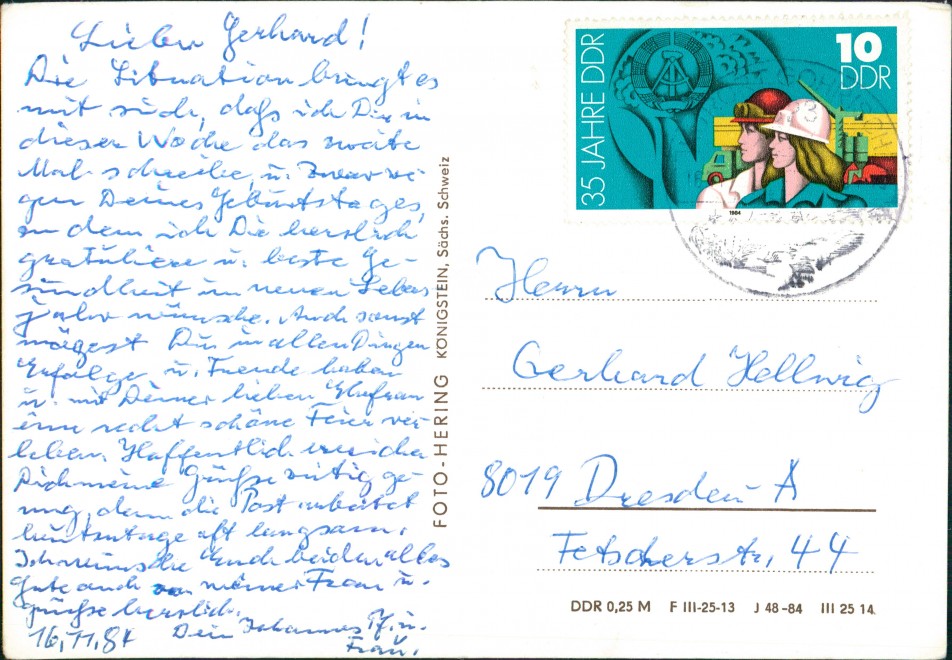 Lieber Gerhard!
Die Situation bringt es
mit sich, daß ich Dir in
dieser Woche das zweite
Mal schreibe, u. zwar we
gen Deines Geburtstages,
zu dem ich Dir herzlich
gratuliere u. beste Ge-
sundheit im neuen Lebens
jahr wünsche. Auch sonst
mögest Du in allen Dingen
Erfolge u. Freude haben
u. mit Deiner lieben Ehefrau
eine recht schöne Feier ver
leben. Hoffentlich erreichen
Dich meine Grüße zeitig ge-
nug, denn die Post arbeitet
heutzutage oft langsam.
Ich wünsche Euch beiden alles
Gute auch von meiner Frau u.
grüße herzlich.
16.11.84 Dein Johannes Pf. u.
Frau.
FOTO-HERING KÖNIGSTEIN, Sächs. Schweiz
35 JAHRE DDR
10
DDR
1984
Herrn
Gerhard Hellwig
8019 Dresden A
Fetscherstr. 44
DDR 0,25 M F III-25-13 J 48-84 III 25 14